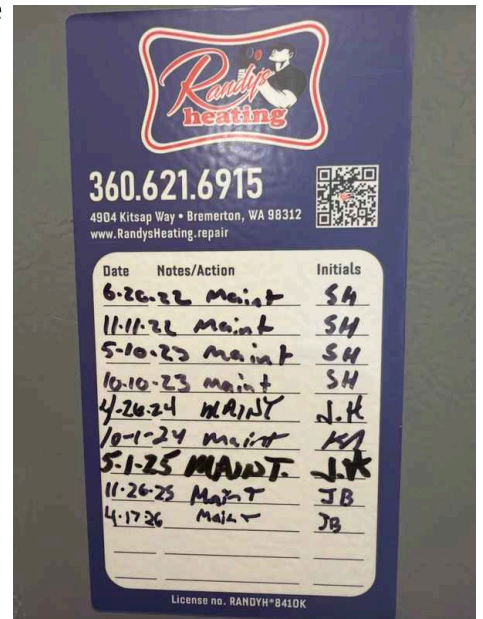 e
Randy's
heating
360.621.6915
4904 Kitsap Way • Bremerton, WA 98312
www.RandysHeating.repair
Date Notes/Action Initials
6-26-22 Maint SH
11-11-22 Maint SH
5-10-23 Maint SH
10-10-23 Maint SH
4-26-24 MAINT J.H
10-1-24 Maint
5-1-25 MAINT.
11-26-25 Maint JB
4-17 26 Maint JB
License no. RANDYH*841OK